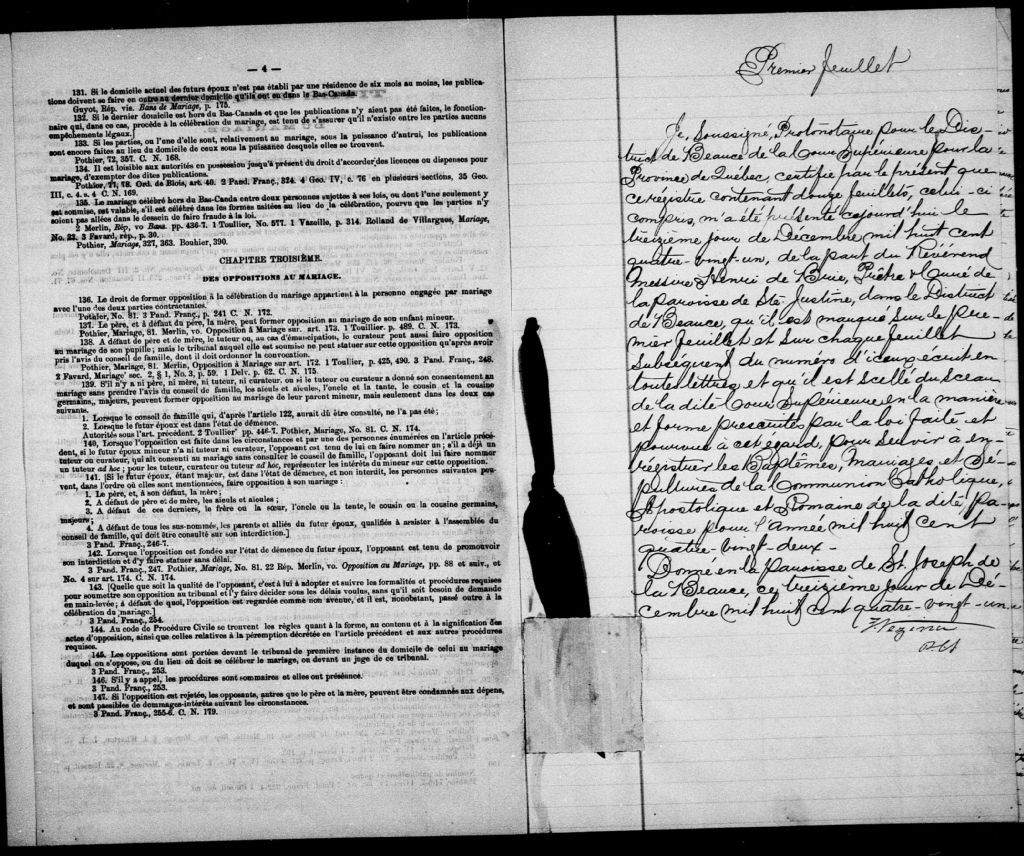 — 4 —
131. Si le domicile actuel des futurs époux n'est pas établi par une résidence de six mois au moins, les publica-
tions doivent se faire en outre au dernier domicile qu'ils ont eu dans le Bas-Canada.
Guyot, Rép. vis. Bans de Mariage, p. 175.
132. Si le dernier domicile est hors du Bas-Canada et que les publications n'y aient pas été faites, le fonction-
naire qui, dans ce cas, procède à la célébration du mariage, est tenu de s'assurer qu'il n'existe entre les parties aucuns
empêchements légaux.
133. Si les parties, ou l'une d'elle sont, relativement au mariage, sous la puissance d'autrui, les publications
sont encore faites au lieu du domicile de ceux sous la puissance desquels elles se trouvent.
Pothier, 72, 357. C. N. 168.
134. Il est loisible aux autorités en possession jusqu'à présent du droit d'accorder des licences ou dispenses pour
mariage, d'exempter des dites publications.
Pothier, 71, 78. Ord. de Blois, art. 40. 2 Pand. Franç., 324. 4 Geo. IV, c. 76 en plusieurs sections, 35 Geo.
III, c. 4. s. 4 C. N. 169.
135. Le mariage célébré hors du Bas-Canada entre deux personnes sujettes à ses lois, ou dont l'une seulement y
est soumise, est valable, s'il est célébré dans les formes usitées au lieu de la célébration, pourvu que les parties n'y
soient pas allées dans le dessein de faire fraude à la loi.
2 Merlin, Rép, vo Bans. pp. 436-7. 1 Toullier, No. 577. 1 Vazeille, p. 314. Rolland de Villargues, Mariage,
No. 23. 3 Favard, rép., p. 30.
Pothier, Mariage, 327, 363. Bouhier, 390.
CHAPITRE TROISIÈME.
DES OPPOSITIONS AU MARIAGE.
136. Le droit de former opposition à la célébration du mariage appartient à la personne engagée par mariage
avec l'une des deux parties contractantes.
Pothier, No. 81. 3 Pand. Franç., p. 241 C. N. 172.
137. Le père, et à défaut du père, la mère, peut former opposition au mariage de son enfant mineur.
Pothier, Mariage, 81. Merlin, vo. Opposition à Mariage sur. art. 173. 1 Touillier. p. 489. C. N. 173.
138. A défaut de père et de mère, le tuteur ou, au cas d'émancipation, le curateur peut aussi faire opposition
au mariage de son pupille; mais le tribunal auquel elle est soumise ne peut statuer sur cette opposition qu'après avoir
pris l'avis du conseil de famille, dont il doit ordonner la convocation.
Pothier, Mariage, 81. Merlin, Opposition à Mariage sur art. 172. 1 Toulier, p. 425, 490. 3 Pand. Franç., 248.
2 Favard, Mariage' sec. 2, § 1, No. 3, p. 59. 1 Delv. p. 62. C. N. 175.
139. S'il n'y a ni père, ni mère, ni tuteur, ni curateur, ou si le tuteur ou curateur a donné son consentement au
mariage sans prendre l'avis du conseil de famille, les aïeuls et aïeules, l'oncle et la tante, le cousin et la cousine
germains, majeurs, peuvent former opposition au mariage de leur parent mineur, mais seulement dans les deux cas
suivants.
1. Lorsque le conseil de famille qui, d'après l'article 122, aurait dû être consulté, ne l'a pas été;
2. Lorsque le futur époux est dans l'état de démence.
Autorités sous l'art. précédent. 2 Toullier' pp. 446-7. Pothier, Mariage, No. 81. C. N. 174.
140. Lorsque l'opposition est faite dans les circonstances et par une des personnes énumérées en l'article précé-
dent, si le futur époux mineur n'a ni tuteur ni curateur, l'opposant est tenu de lui en faire nommer un; s'il a déjà un
tuteur ou curateur, qui ait consenti au mariage sans consulter le conseil de famille, l'opposant doit lui faire nommer
un tuteur ad hoc; pour les tuteur, curateur ou tuteur ad hoc, représenter les intérêts du mineur sur cette opposition.
141. [Si le futur époux, étant majeur, est dans l'état de démence, et non interdit, les personnes suivantes peu-
vent, dans l'ordre où elles sont mentionnées, faire opposition à son mariage:
1. Le père, et, à son défaut, la mère;
2. A défaut de père et de mère, les aïeuls et aïeules;
3. A défaut de ces derniers, le frère ou la sœur, l'oncle ou la tante, le cousin ou la cousine germains,
majeurs;
4. A défaut de tous les sus-nommés, les parents et alliés du futur époux, qualifiés à assister à l'assemblée du
conseil de famille, qui doit être consulté sur son interdiction.]
3 Pand. Franç., 246-7.
142. Lorsque l'opposition est fondée sur l'état de démence du futur époux, l'opposant est tenu de promouvoir
son interdiction et d'y faire statuer sans délai.
3 Pand. Franç., 247. Pothier, Mariage, No. 81. 22 Rép. Merlin, vo. Opposition au Mariage, pp. 88 et suiv., et
No. 4 sur art. 174. C. N. 174.
143. [Quelle que soit la qualité de l'opposant, c'est à lui à adopter et suivre les formalités et procédures requises
pour soumettre son opposition au tribunal et l'y faire décider sous les délais voulus, sans qu'il soit besoin de demande
en main-levée; à défaut de quoi, l'opposition est regardée comme non avenue, et il est, nonobstant, passé outre à la
célébration du mariage.]
3 Pand. Franç., 254.
144. Au code de Procédure Civile se trouvent les règles quant à la forme, au contenu et à la signification des
actes d'opposition, ainsi que celles relatives à la péremption décrétée en l'article précédent et aux autres procédures
requises.
145. Les oppositions sont portées devant le tribunal de première instance du domicile de celui au mariage
duquel on s'oppose, ou du lieu où doit se célébrer le mariage, ou devant un juge de ce tribunal.
3 Pand. Franç., 253.
146. S'il y a appel, les procédures sont sommaires et elles ont préséance.
3 Pand. Franç., 253.
147. Si l'opposition est rejetée, les opposants, autres que le père et la mère, peuvent être condamnés aux dépens,
et sont passibles de dommages-intérêts suivant les circonstances.
3 Pand. Franç., 255-6. C. N. 179.
Premier feuillet
Je, Soussigné, Protonotaire pour le Dis-
trict de Beauce de la Cour Supérieure pour la
Province de Québec, certifie par le présent que
ce registre contenant douze feuillets, celui-ci
compris, m'a été présenté aujourd'hui le
treizième jour de Décembre mil huit cent
quatre-vingt-un, de la part du Révérend
Messire Henri de Brie, Prêtre & Curé de
la paroisse de Ste Justine, dans le District
de Beauce, qu'il est marqué sur le pre-
mier feuillet et sur chaque feuillet
subséquent du numéro d'iceux écrit en
toutes lettres, et qu'il est scellé du sceau
de la dite Cour Supérieure en la manière
et forme prescrites par la loi faite et
pourvue à cet égard, pour servir à en-
régistrer les Baptêmes, Mariages, et Sé-
pultures de la Communion Catholique,
Apostolique et Romaine de la dite pa-
roisse pour l'Année mil huit cent
quatre-vingt-deux.-
Donné en la paroisse de St. Joseph de
la Beauce, ce treizième jour de Dé-
cembre mil huit cent quatre-vingt-un
Vezina
P.C.S